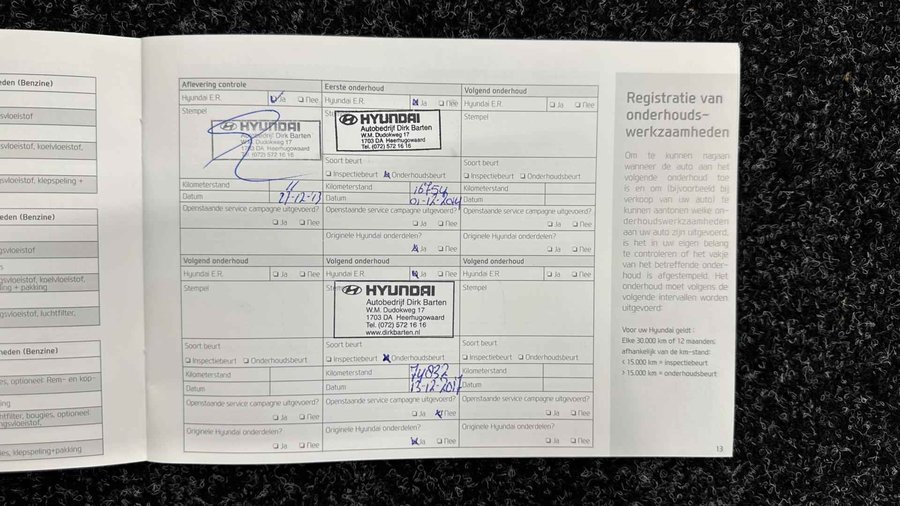 eden (Benzine)
gsvloeistof
vloeistof, koelvloeistof,
istof, klepspeling +
gsvloeistof
gsvloeistof, koelvloeistof,
ing + pakking
gsvloeistof, luchtfilter,
eden (Benzine)
es, optioneel: Rem- en kop-
ing
htfilter, bougies, optioneel:
ngsvloeistof,
es, klepspeling+pakking
Aflevering controle
Hyundai E.R. Ja Nee
Stempel
HYUNDAI
Autobedrijf Dirk Barten
W.M. Dudokweg 17
1703 DA Heerhugowaard
Tel. (072) 572 16 16
Kilometerstand 11
Datum 27-12-13
Openstaande service campagne uitgevoerd?
Ja Nee
Eerste onderhoud
Hyundai E.R. Ja Nee
HYUNDAI
Autobedrijf Dirk Barten
W.M. Dudokweg 17
1703 DA Heerhugowaard
Tel. (072) 572 16 16
Soort beurt
Inspectiebeurt Onderhoudsbeurt
Kilometerstand 16754
Datum 01-12-2014
Openstaande service campagne uitgevoerd?
Ja Nee
Originele Hyundai onderdelen?
Ja Nee
Volgend onderhoud
Hyundai E.R. Ja Nee
Stempel
Soort beurt
Inspectiebeurt Onderhoudsbeurt
Kilometerstand
Datum
Openstaande service campagne uitgevoerd?
Ja Nee
Originele Hyundai onderdelen?
Ja Nee
Volgend onderhoud
Hyundai E.R. Ja Nee
Stempel
Soort beurt
Inspectiebeurt Onderhoudsbeurt
Kilometerstand
Datum
Openstaande service campagne uitgevoerd?
Ja Nee
Originele Hyundai onderdelen?
Ja Nee
Volgend onderhoud
Hyundai E.R. Ja Nee
HYUNDAI
Autobedrijf Dirk Barten
W.M. Dudokweg 17
1703 DA Heerhugowaard
Tel. (072) 572 16 16
www.dirkbarten.nl
Soort beurt
Inspectiebeurt Onderhoudsbeurt
Kilometerstand 74832
Datum 13-12-2017
Openstaande service campagne uitgevoerd?
Ja Nee
Originele Hyundai onderdelen?
Ja Nee
Volgend onderhoud
Hyundai E.R. Ja Nee
Stempel
Soort beurt
Inspectiebeurt Onderhoudsbeurt
Kilometerstand
Datum
Openstaande service campagne uitgevoerd?
Ja Nee
Originele Hyundai onderdelen?
Ja Nee
Registratie van
onderhouds-
werkzaamheden
Om te kunnen nagaan
wanneer de auto aan het
volgende onderhoud toe
is en om (bijvoorbeeld bij
verkoop van uw auto) te
kunnen aantonen welke on-
derhoudswerkzaamheden
aan uw auto zijn uitgevoerd,
is het in uw eigen belang
te controleren of het vakje
van het betreffende onder-
houd is afgestempeld. Het
onderhoud moet volgens de
volgende intervallen worden
uitgevoerd:
Voor uw Hyundai geldt :
Elke 30.000 km of 12 maanden;
afhankelijk van de km-stand:
< 15.000 km = inspectiebeurt
> 15.000 km = onderhoudsbeurt
13